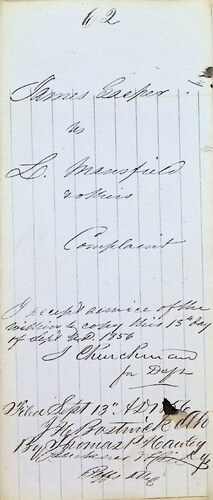 62
James Casper
vs
L. Mansfield
& others
Complaint
I accept service of the
within by copy this 13th day
of Sept A.D. 1856
J Churchman
for Deft
Filed Sept 13th A.D. 1856
Bostwick Clk
By Thomas P Hawley
Dy
Plffs Atty